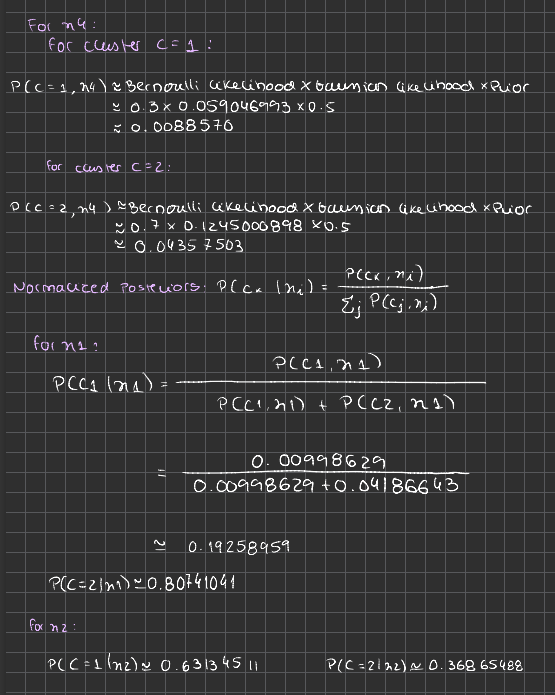 For x4:
For cluster C = 1 :
P(C = 1, x4) ≈ Bernoulli likelihood × Gaussian likelihood × Prior
≈ 0.3 × 0.059046993 × 0.5
≈ 0.0088570
For cluster C=2:
P(C = 2, x4) ≈ Bernoulli likelihood × Gaussian likelihood × Prior
≈ 0.7 × 0.1245000898 × 0.5
≈ 0.04357503
Normalized Posteriors: P(Cₖ | xᵢ) = P(Cₖ, xᵢ) / Σⱼ P(Cⱼ, xᵢ)
For x1 :
P(C1 | x1) = P(C1, x1) / P(C1, x1) + P(C2, x1)
= 0.00998629 / 0.00998629 + 0.04186643
≃ 0.19258959
P(C=2|x1) ≃ 0.80741041
For x2:
P(C=1|x2) ≃ 0.63134511 P(C=2|x2) ≃ 0.36865488